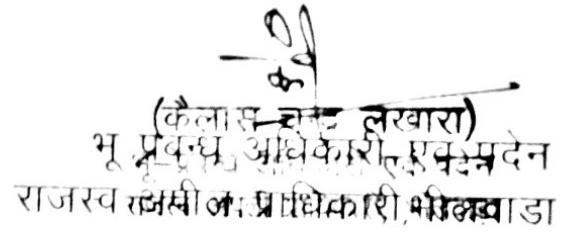 (कैलास चन्द्र लखारा)
भू प्रबन्ध अधिकारी एवं पदेन
राजस्व अपील प्राधिकारी, भीलवाडा